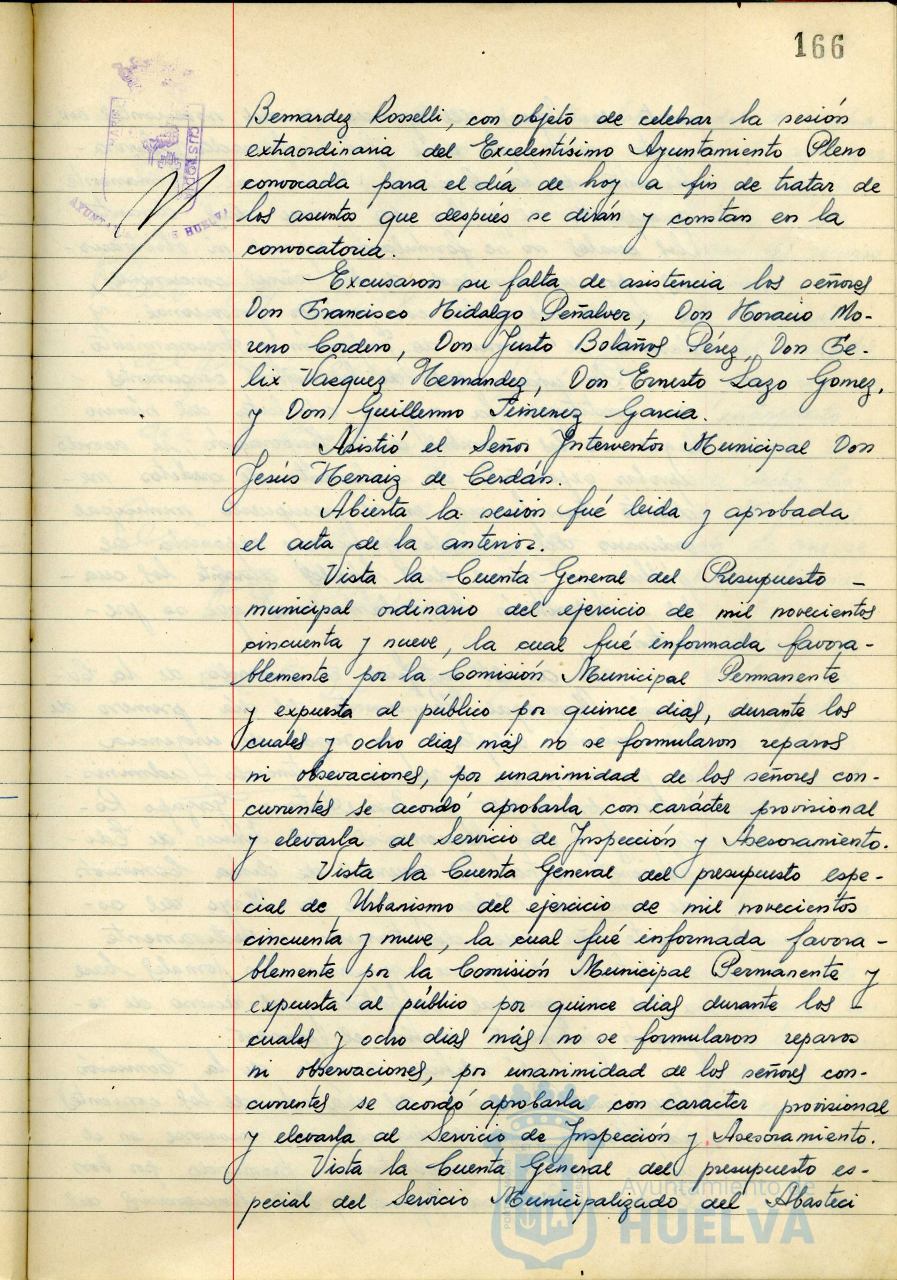 166
Bernardez Rosselli, con objeto de celebrar la sesión
extraordinaria del Excelentísimo Ayuntamiento Pleno
convocada para el día de hoy a fin de tratar de
los asuntos que después se dirán y constan en la
convocatoria.
Excusaron su falta de asistencia los señores
Don Francisco Hidalgo Peñalver, Don Horacio Mo-
reno Cordero, Don Justo Bolaños Pérez, Don Fe-
lix Vazquez Hernandez, Don Ernesto Lazo Gomez,
y Don Guillermo Jimenez Garcia.
Asistió el Señor Interventor Municipal Don
Jesús Herraiz de Cerdán.
Abierta la sesión fué leida y aprobada
el acta de la anterior.
Vista la Cuenta General del Presupuesto -
municipal ordinario del ejercicio de mil novecientos
cincuenta y nueve, la cual fué informada favora-
blemente por la Comisión Municipal Permanente
y expuesta al público por quince dias, durante los
cuales y ocho dias más no se formularon reparos
ni obsevaciones, por unanimidad de los señores con-
currentes se acordó aprobarla con carácter provisional
y elevarla al Servicio de Inspección y Asesoramiento.
Vista la Cuenta General del presupuesto espe-
cial de Urbanismo del ejercicio de mil novecientos
cincuenta y nueve, la cual fué informada favora-
blemente por la Comisión Municipal Permanente y
expuesta al público por quince dias durante los -
cuales y ocho dias más no se formularon reparos
ni observaciones, por unanimidad de los señores con-
currentes se acordó aprobarla con caracter provisional
y elevarla al Servicio de Inspección y Asesoramiento.
Vista la Cuenta General del presupuesto es-
pecial del Servicio Municipalizado del Abasteci
Ayuntamiento de
HUELVA